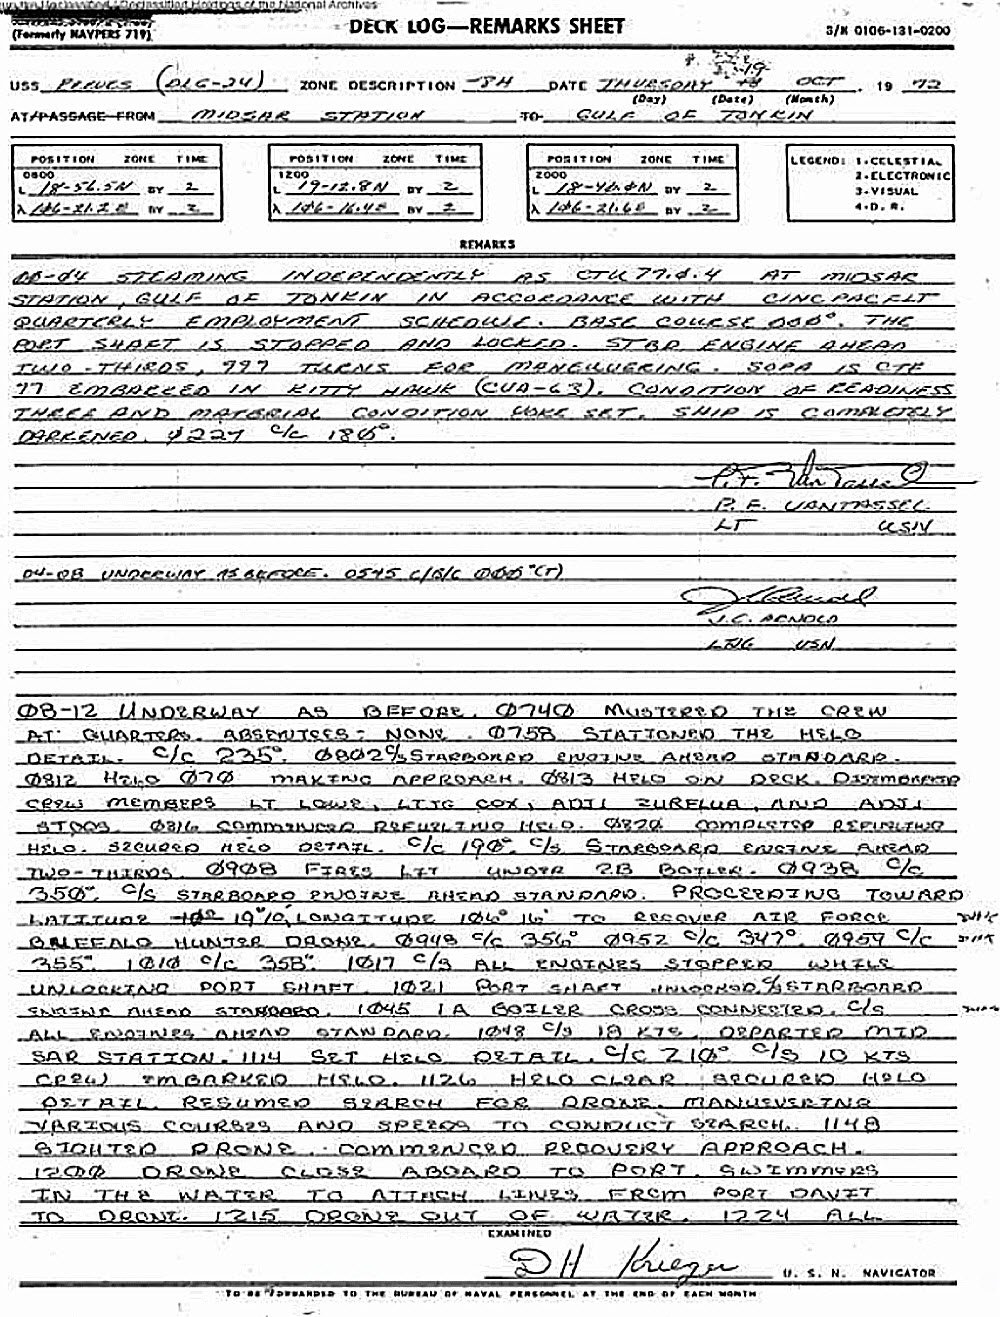 Declassified Holdings of the National Archives
(Formerly NAVPERS 719)
DECK LOG—REMARKS SHEET
S/N 0106-131-0200
USS REEVES (DLG-24) ZONE DESCRIPTION -8H DATE THURSDAY 19 OCT, 19 72
(Day) (Date) (Month)
AT/PASSAGE FROM MIDSAR STATION TO GULF OF TONKIN
POSITION ZONE TIME POSITION ZONE TIME POSITION ZONE TIME LEGEND: 1-CELESTIAL
0800 1200 2000 2-ELECTRONIC
L 18-56.5N BY 2 L 19-12.8N BY 2 L 18-40.0N BY 2 3-VISUAL
λ 106-21.2E BY 2 λ 106-16.4E BY 2 λ 106-21.6E BY 2 4-D.R.
REMARKS
00-04 STEAMING INDEPENDENTLY AS CTU 77.0.4 AT MIDSAR
STATION, GULF OF TONKIN IN ACCORDANCE WITH CINCPACFLT
QUARTERLY EMPLOYMENT SCHEDULE. BASE COURSE 000°. THE
PORT SHAFT IS STOPPED AND LOCKED. STBD ENGINE AHEAD
TWO-THIRDS, 997 TURNS FOR MANEUVERING. SOPA IS CTF
77 EMBARKED IN KITTY HAWK (CVA-63). CONDITION OF READINESS
THREE AND MATERIAL CONDITION YOKE SET. SHIP IS COMPLETELY
DARKENED. 0227 C/C 180°.
P. F. VANTASSEL
LT USN
04-08 UNDERWAY AS BEFORE. 0545 C/B/C 000°(T)
J.C. ARNOLD
LTJG USN
08-12 UNDERWAY AS BEFORE. 0740 MUSTERED THE CREW
AT QUARTERS. ABSENTEES: NONE. 0758 STATIONED THE HELO
DETAIL. C/C 235°. 0802 C/S STARBOARD ENGINE AHEAD STANDARD.
0812 HELO 070 MAKING APPROACH. 0813 HELO ON DECK. DISEMBARKED
CREW MEMBERS LT LOWE, LTJG COX, ADJ1 ZURFLUA, AND ADJ1
0816 COMMENCED REFUELING HELO. 0820 COMPLETED REFUELING
HELO. SECURED HELO DETAIL. C/C 190°. C/S STARBOARD ENGINE AHEAD
TWO-THIRDS. 0908 FIRES LIT UNDER 2B BOILER. 0938 C/C
350°. C/S STARBOARD ENGINE AHEAD STANDARD. PROCEEDING TOWARD
LATITUDE 19°10, LONGITUDE 106° 16' TO RECOVER AIR FORCE
BUFFALO HUNTER DRONE. 0948 C/C 356° 0952 C/C 347°. 0959 C/C
355°. 1010 C/C 358°. 1017 C/S ALL ENGINES STOPPED WHILE
UNLOCKING PORT SHAFT. 1021 PORT SHAFT UNLOCKED, C/S STARBOARD
ENGINE AHEAD STANDARD. 1045 1A BOILER CROSS CONNECTED. C/S
ALL ENGINES AHEAD STANDARD. 1048 C/S 18 KTS. DEPARTED MID
SAR STATION. 1114 SET HELO DETAIL. C/C 210° C/S 10 KTS
CREW EMBARKED HELO. 1126 HELO CLEAR SECURED HELO
DETAIL. RESUMED SEARCH FOR DRONE. MANUEVERING
VARIOUS COURSES AND SPEEDS TO CONDUCT SEARCH. 1148
SIGHTED DRONE. COMMENCED RECOVERY APPROACH.
1200 DRONE CLOSE ABOARD TO PORT. SWIMMERS
IN THE WATER TO ATTACH LINES FROM PORT DAVIT
TO DRONE. 1215 DRONE OUT OF WATER. 1224 ALL
EXAMINED
DH Krieger U. S. N. NAVIGATOR
TO BE FORWARDED TO THE BUREAU OF NAVAL PERSONNEL AT THE END OF EACH MONTH